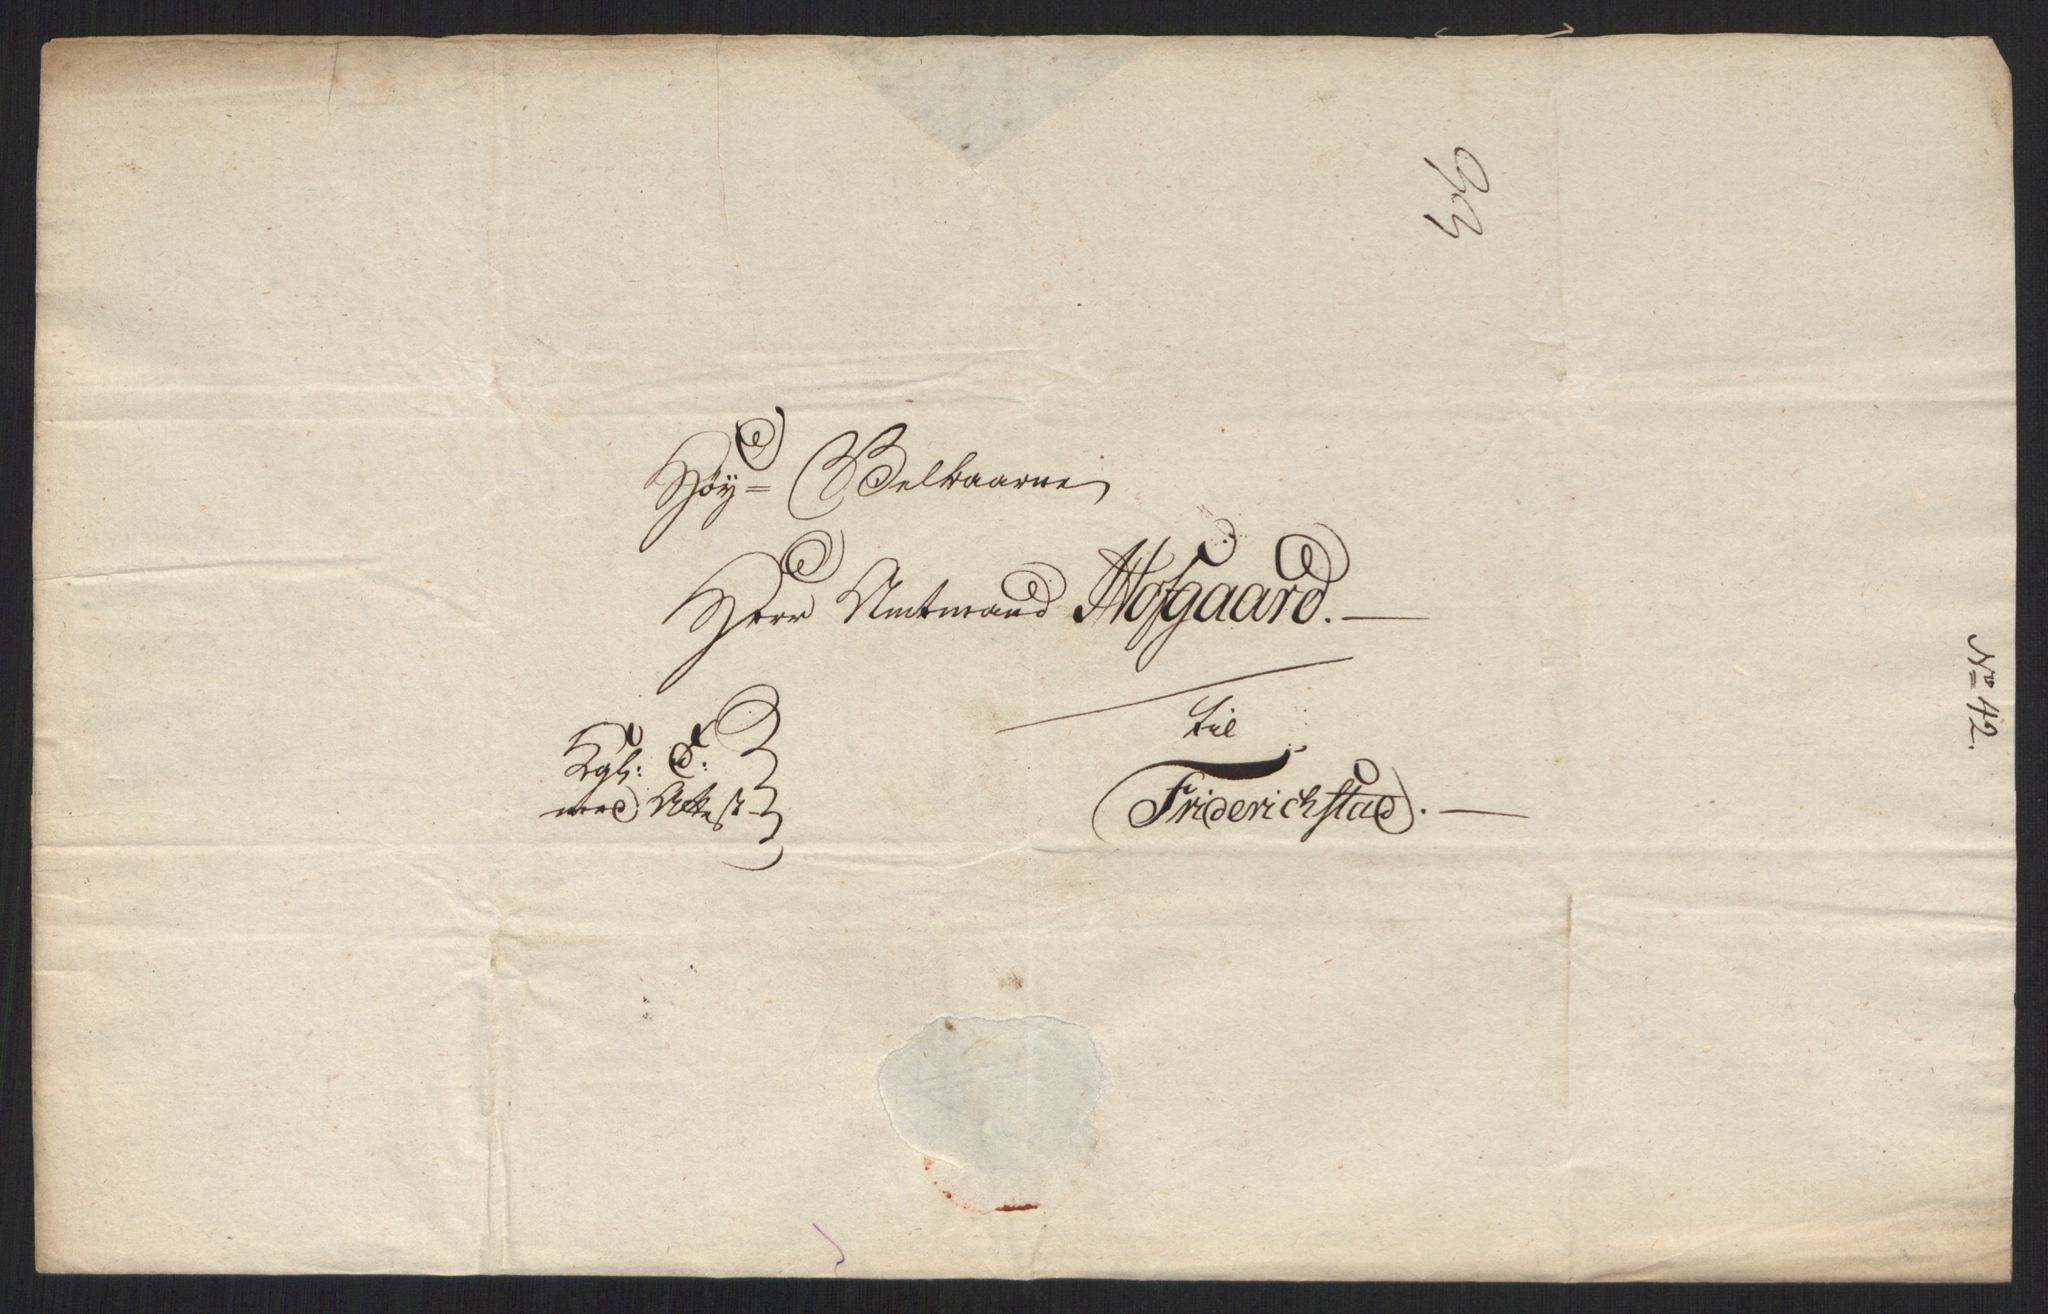 Höy- Velbaarne
Herr Amtmand Hofgaard.
til
Friderichstad.
Kgl: T:
med Attest
No 42.